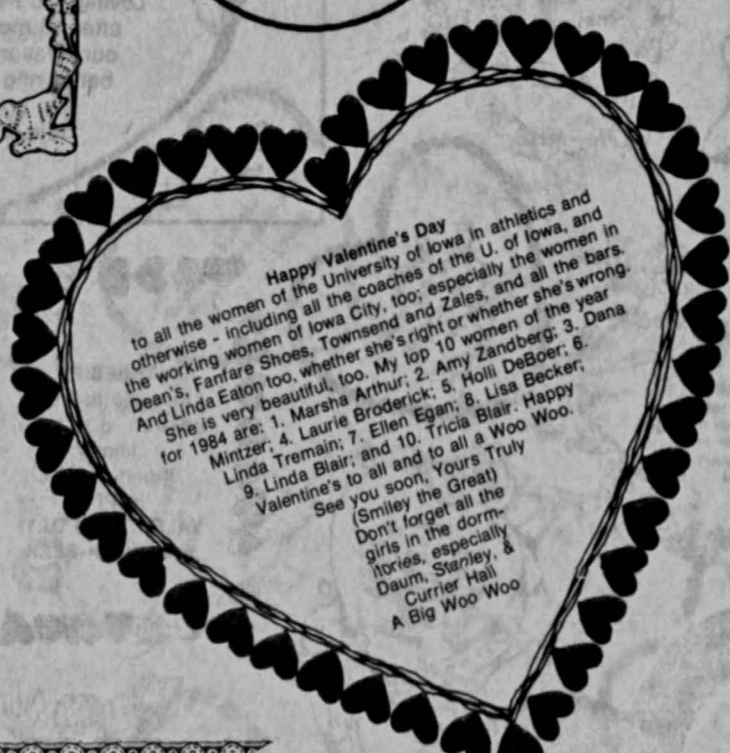 Happy Valentine's Day
to all the women of the University of Iowa in athletics and
otherwise - including all the coaches of the U. of Iowa, and
the working women of Iowa City, too; especially the women in
Dean's, Fanfare Shoes, Townsend and Zales, and all the bars.
And Linda Eaton too, whether she's right or whether she's wrong.
She is very beautiful, too. My top 10 women of the year
for 1984 are: 1. Marsha Arthur; 2. Amy Zandberg; 3. Dana
Mintzer; 4. Laurie Broderick; 5. Holli DeBoer; 6.
Linda Tremain; 7. Ellen Egan; 8. Lisa Becker;
9. Linda Blair; and 10. Tricia Blair. Happy
Valentine's to all and to all a Woo Woo.
See you soon, Yours Truly
(Smiley the Great)
Don't forget all the
girls in the dorm-
itories, especially
Daum, Stanley, &
Currier Hall
A Big Woo Woo